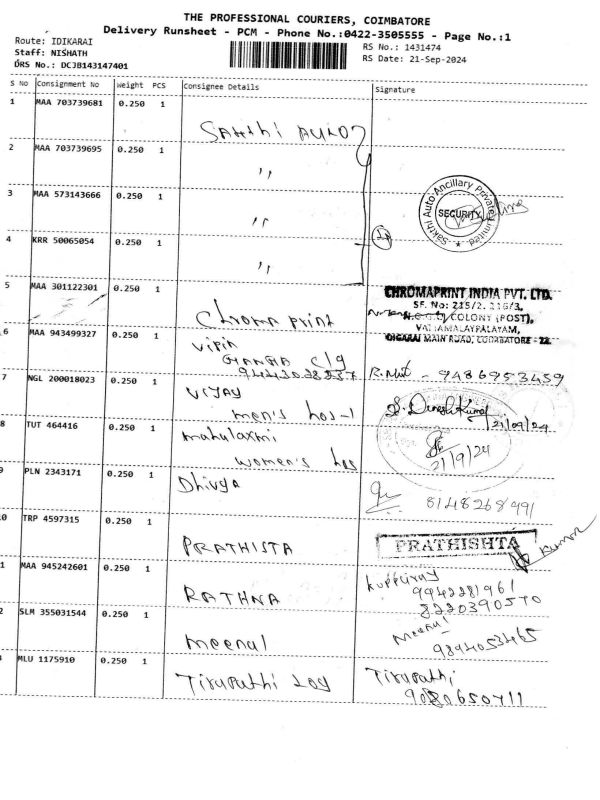 THE PROFESSIONAL COURIERS, COIMBATORE
Delivery Runsheet - PCM - Phone No.:0422-3505555 - Page No.:1
Route: IDIKARAI
RS No.: 1431474
Staff: NISHATH
RS Date: 21-Sep-2024
DRS No.: DCJB143147401
S No Consignment No Weight PCS Consignee Details Signature
1 MAA 703739681 0.250 1
Sakthi Auto
2 MAA 703739695 0.250 1
"
3 MAA 573143666 0.250 1
"
Sakthi Auto Ancillary Private Limited
SECURITY
4 KRR 50065054 0.250 1
"
5 MAA 301122301 0.250 1
Chroma print
CHROMAPRINT INDIA PVT. LTD.
SF. No: 215/2, 216/3,
COLONY (POST),
VATTAMALAYPALAYAM,
MAIN ROAD, COIMBATORE - 22.
6 MAA 943499327 0.250 1
vipin
GANGA c/g
9443028237
- 9486953459
7 NGL 200018023 0.250 1
VIJAY
men's hos-1
S. Dineshkumar
21/09/24
8 TUT 464416 0.250 1
mahalaxmi
women's hos
21/9/24
9 PLN 2343171 0.250 1
Dhivya
8148268991
0 TRP 4597315 0.250 1
PRATHISTA
PRATHISHTA
Kumar
1 MAA 945242601 0.250 1
RATHNA
9942281961
8220390570
2 SLM 355031544 0.250 1
meenal
meenal
9894053465
MLU 1175910 0.250 1
Tirupathi Log
Tirupathi
9080650711